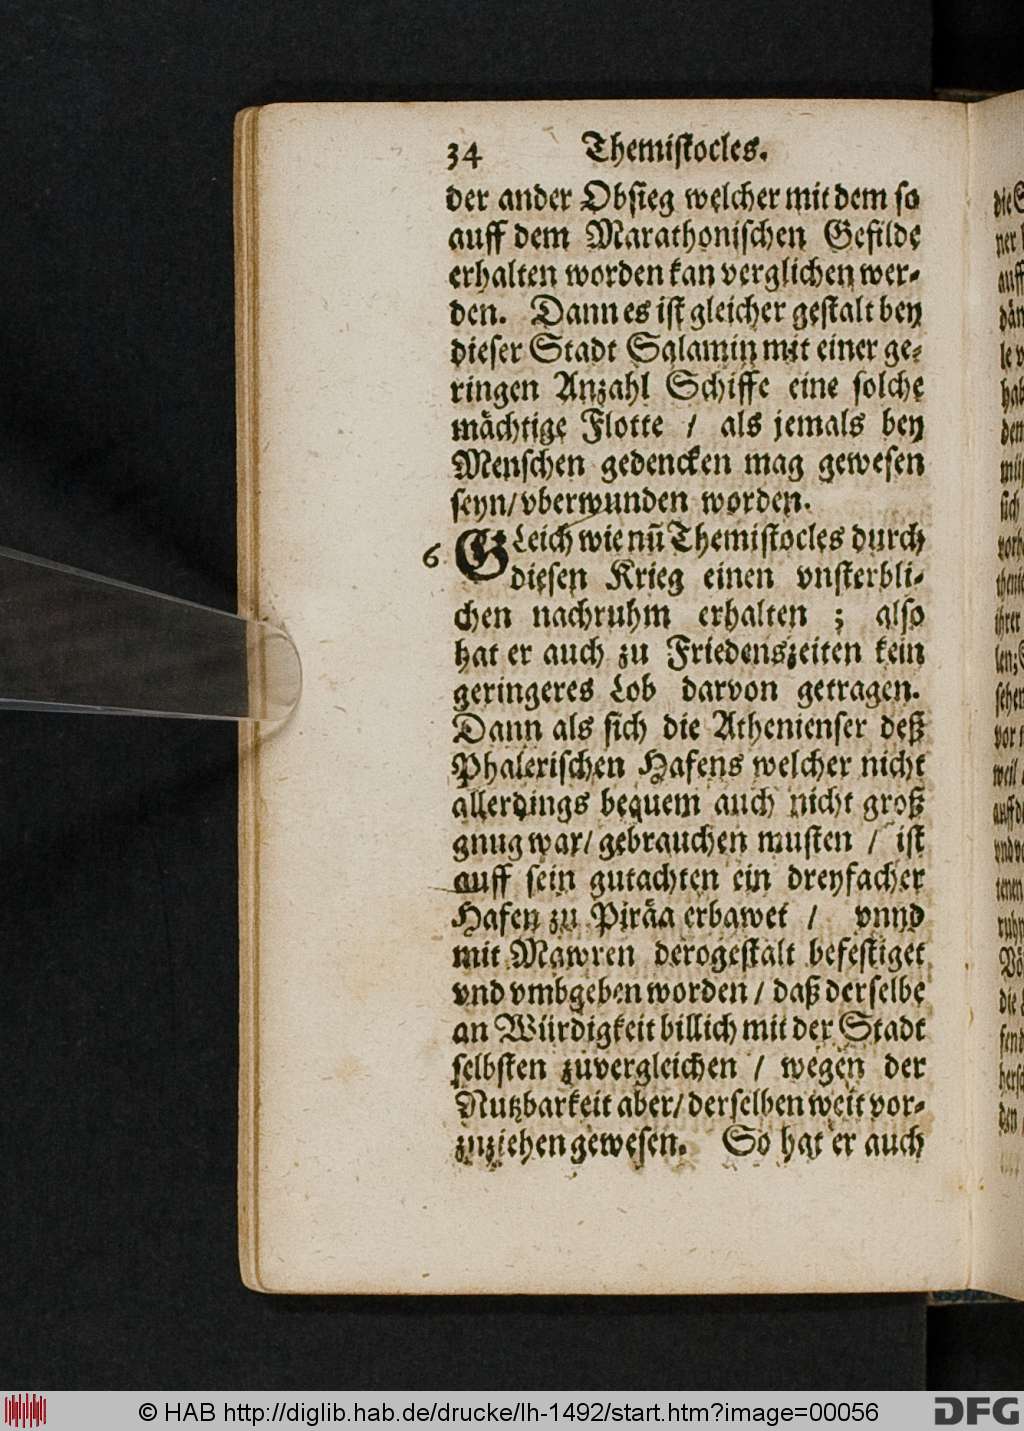 34 Themistocles.
der ander Obsieg welcher mit dem so
auff dem Marathonischen Gefilde
erhalten worden kan verglichen wer-
den. Dann es ist gleicher gestalt bey
dieser Stadt Salamin mit einer ge-
ringen Anzahl Schiffe eine solche
mächtige Flotte / als jemals bey
Menschen gedencken mag gewesen
seyn / vberwunden worden.
6 GLeich wie nũ Themistocles durch
diesen Krieg einen vnsterbli-
chen nachruhm erhalten ; also
hat er auch zu Friedenszeiten kein
geringeres Lob darvon getragen.
Dann als sich die Athenienser deß
Phalerischen Hafens welcher nicht
allerdings bequem auch nicht groß
gnug war / gebrauchen musten / ist
auff sein gutachten ein dreyfacher
Hafen zu Piräa erbawet / vnnd
mit Mawren derogestalt befestiget
vnd vmbgeben worden / daß derselbe
an Würdigkeit billich mit der Stadt
selbsten zuvergleichen / wegen der
Nutzbarkeit aber / derselben weit vor-
zuziehen gewesen. So hat er auch
© HAB http://diglib.hab.de/drucke/lh-1492/start.htm?image=00056
DFG